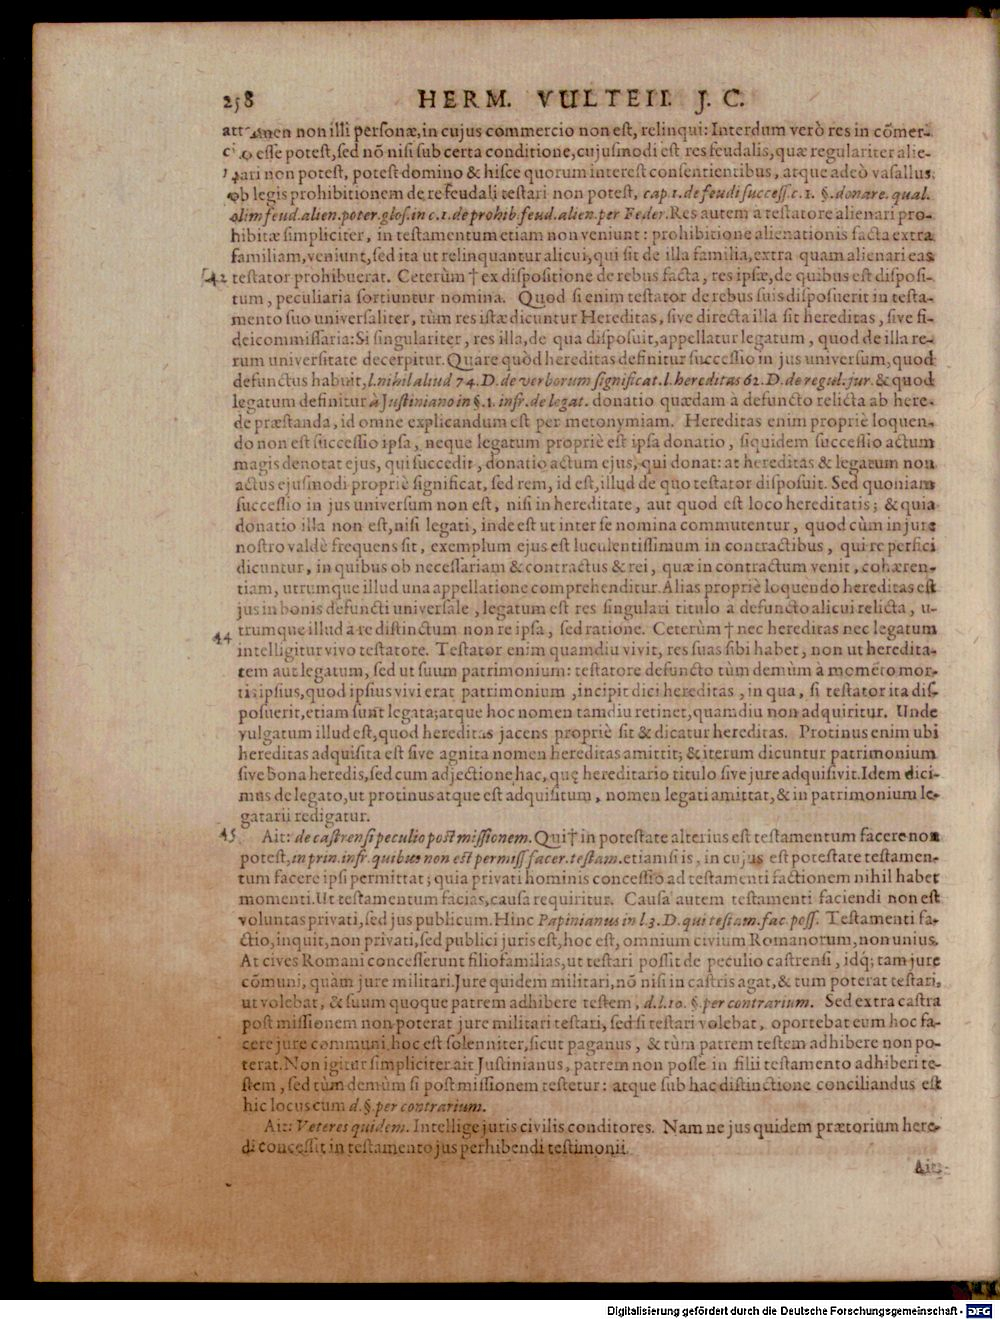 258 HERM. VULTEII. J. C.
attamen non illi personæ, in cujus commercio non est, relinqui: Interdum verò res in cõmer-
cio esse potest, sed nõ nisi sub certa conditione, cujusmodi est res feudalis, quæ regulariter alie-
nari non potest, potest domino & hisce quorum interest consentientibus, atque adeò vasallus
ob legis prohibitionem de re feudali testari non potest, cap. 1. de feudi success. c. 1. §. donare. qual.
olim feud. alien. poter. glos. in c. 1. de prohib. feud. alien. per Feder. Res autem à testatore alienari pro-
hibitæ simpliciter, in testamentum etiam non veniunt: prohibitione alienationis facta extra
familiam, veniunt, sed ita ut relinquantur alicui, qui sit de illa familia, extra quam alienari eas
42 testator prohibuerat. Ceterùm † ex dispositione de rebus facta, res ipsæ, de quibus est disposi-
tum, peculiaria sortiuntur nomina. Quod si enim testator de rebus suis disposuerit in testa-
mento suo universaliter, tùm res istæ dicuntur Hereditas, sive directa illa sit hereditas, sive fi-
deicommissaria: Si singulariter, res illa, de qua disposuit, appellatur legatum, quod de illa re-
rum universitate decerpitur. Quare quòd hereditas definitur successio in jus universum, quod
defunctus habuit, l. nihil aliud 74. D. de verborum significat. l. hereditas 62. D. de regul. jur. & quod
legatum definitur à Justiniano in §. 1. infr. de legat. donatio quædam à defuncto relicta ab here-
de præstanda, id omne explicandum est per metonymiam. Hereditas enim propriè loquen-
do non est successio ipsa, neque legatum propriè est ipsa donatio, siquidem successio actum
magis denotat ejus, qui succedit, donatio actum ejus, qui donat: at hereditas & legatum non
actus ejusmodi propriè significat, sed rem, id est, illud de quo testator disposuit. Sed quoniam
successio in jus universum non est, nisi in hereditate, aut quod est loco hereditatis; & quia
donatio illa non est, nisi legati, inde est ut inter se nomina commutentur, quod cùm in jure
nostro valdè frequens sit, exemplum ejus est luculentissimum in contractibus, qui re perfici
dicuntur, in quibus ob necessariam & contractus & rei, quæ in contractum venit, cohæren-
tiam, utrumque illud una appellatione comprehenditur. Alias propriè loquendo hereditas est
jus in bonis defuncti universale, legatum est res singulari titulo à defuncto alicui relicta, u-
trumque illud à re distinctum non re ipsa, sed ratione. Ceterùm † nec hereditas nec legatum
44 intelligitur vivo testatore. Testator enim quamdiu vivit, res suas sibi habet, non ut heredita-
tem aut legatum, sed ut suum patrimonium: testatore defuncto tùm demùm à momẽto mor-
tis ipsius, quod ipsius vivi erat patrimonium, incipit dici hereditas, in qua, si testator ita dis-
posuerit, etiam sunt legata; atque hoc nomen tamdiu retinet, quamdiu non adquiritur. Unde
vulgatum illud est, quod hereditas jacens propriè sit & dicatur hereditas. Protinus enim ubi
hereditas adquisita est sive agnita nomen hereditas amittit; & iterum dicuntur patrimonium
sive bona heredis, sed cum adjectione hac, quę hereditario titulo sive jure adquisivit. Idem dici-
mus de legato, ut protinus atque est adquisitum, nomen legati amittat, & in patrimonium le-
gatarii redigatur.
45 Ait: de castrensi peculio post missionem. Qui † in potestate alterius est testamentum facere non
potest, in prin. infr. quibus non est permiss. facer. testam. etiamsi is, in cujus est potestate testamen-
tum facere ipsi permittat; quia privati hominis concessio ad testamenti factionem nihil habet
momenti. Ut testamentum facias, causa requiritur. Causa autem testamenti faciendi non est
voluntas privati, sed jus publicum. Hinc Papinianus in l. 3. D. qui testam. fac. poss. Testamenti fa-
ctio, inquit, non privati, sed publici juris est, hoc est, omnium civium Romanorum, non unius.
At cives Romani concesserunt filiofamilias, ut testari possit de peculio castrensi, idq; tam jure
cõmuni, quàm jure militari. Jure quidem militari, nõ nisi in castris agat, & tum poterat testari,
ut volebat, & suum quoque patrem adhibere testem, d. l. 10. §. per contrarium. Sed extra castra
post missionem non poterat jure militari testari, sed si testari volebat, oportebat eum hoc fa-
cere jure communi, hoc est solenniter, sicut paganus, & tùm patrem testem adhibere non po-
terat. Non igitur simpliciter ait Justinianus, patrem non posse in filii testamento adhiberi te-
stem, sed tùm demùm si post missionem testetur: atque sub hac distinctione conciliandus est
hic locus cum d. §. per contrarium.
Ait: Veteres quidem. Intellige juris civilis conditores. Nam ne jus quidem prætorium here-
di concessit in testamento jus perhibendi testimonii.
Ait:
Digitalisierung gefördert durch die Deutsche Forschungsgemeinschaft - DFG